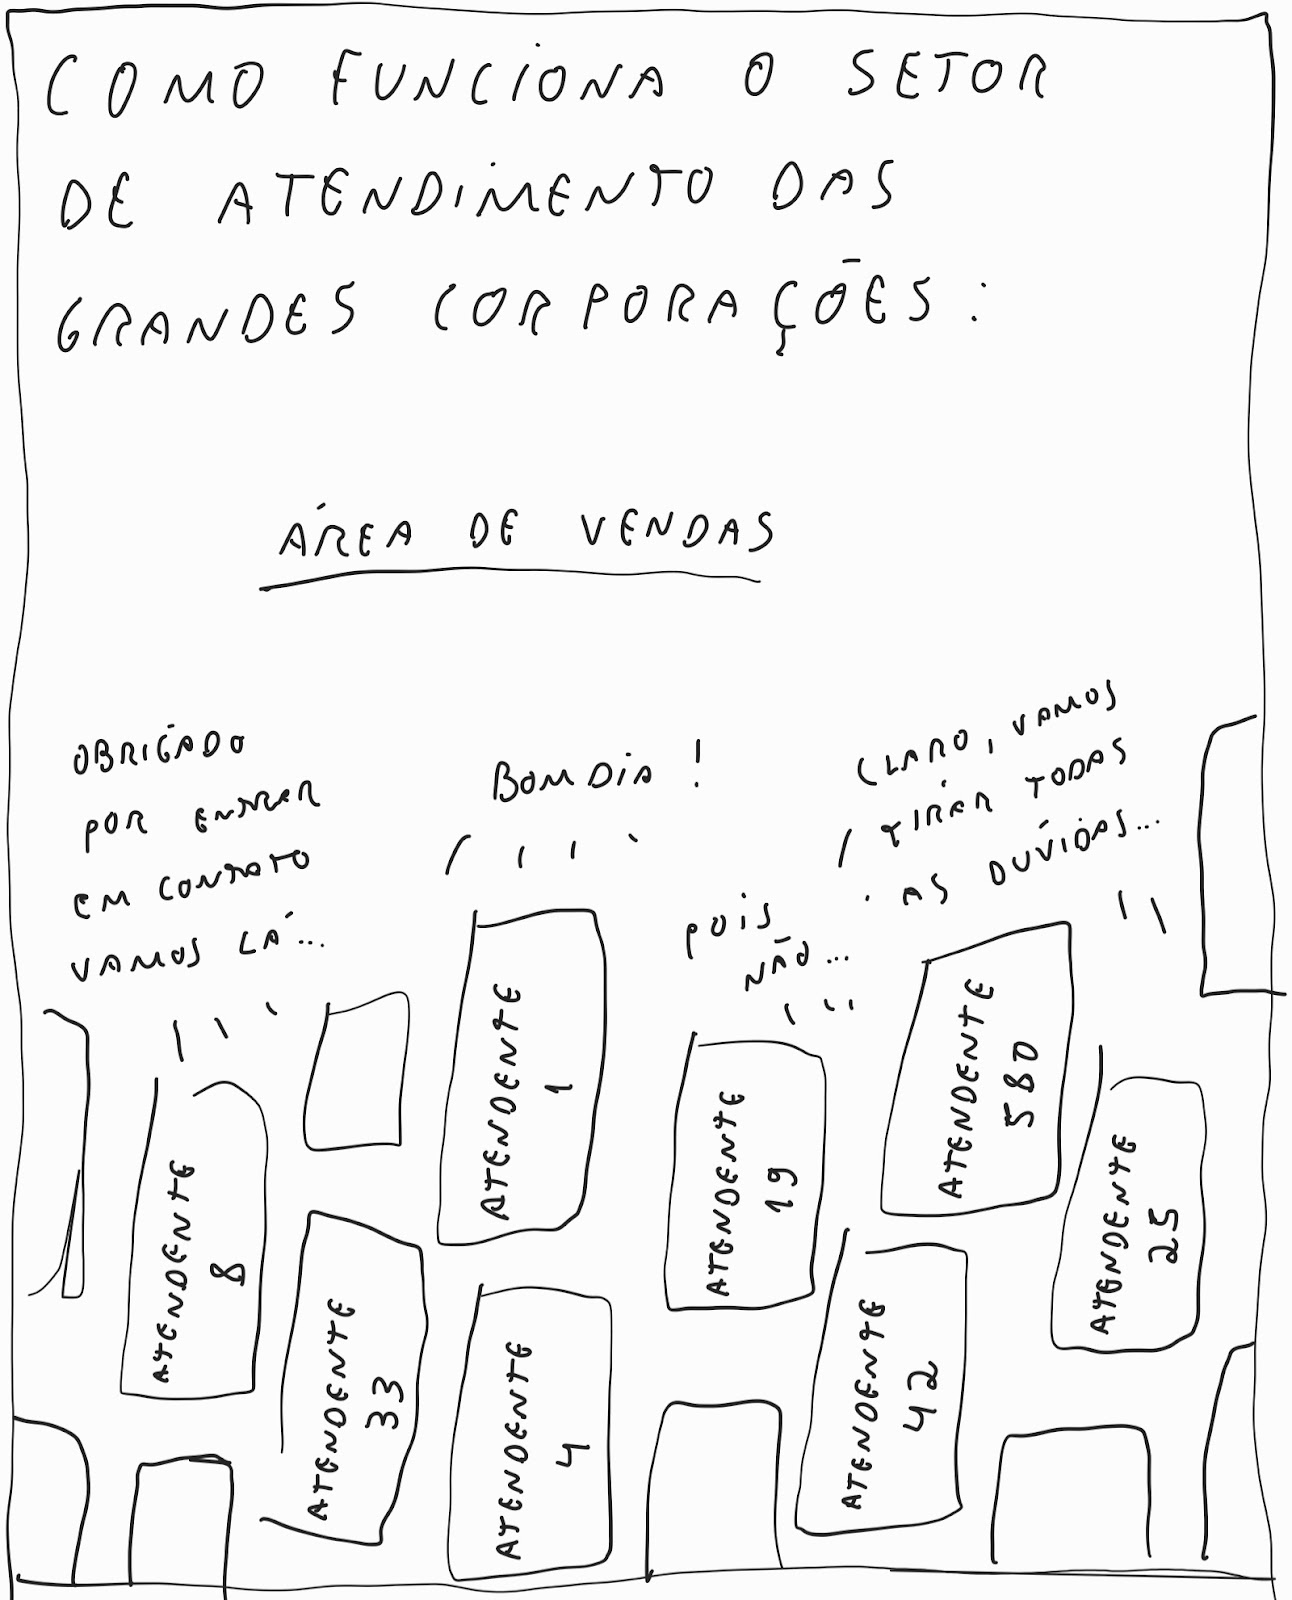 COMO FUNCIONA O SETOR
DE ATENDIMENTO DAS
GRANDES CORPORAÇÕES:
ÁREA DE VENDAS
OBRIGADO
POR ENTRAR
EM CONTATO
VAMOS LÁ...
BOM DIA!
POIS
NÃO...
CLARO, VAMOS
TIRAR TODAS
AS DUVIDAS...
ATENDENTE
8
ATENDENTE
33
ATENDENTE
1
ATENDENTE
4
ATENDENTE
19
ATENDENTE
580
ATENDENTE
42
ATENDENTE
25